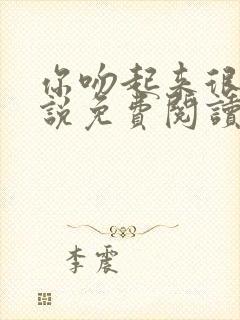 你吻起来很
說免費閱讀
李震